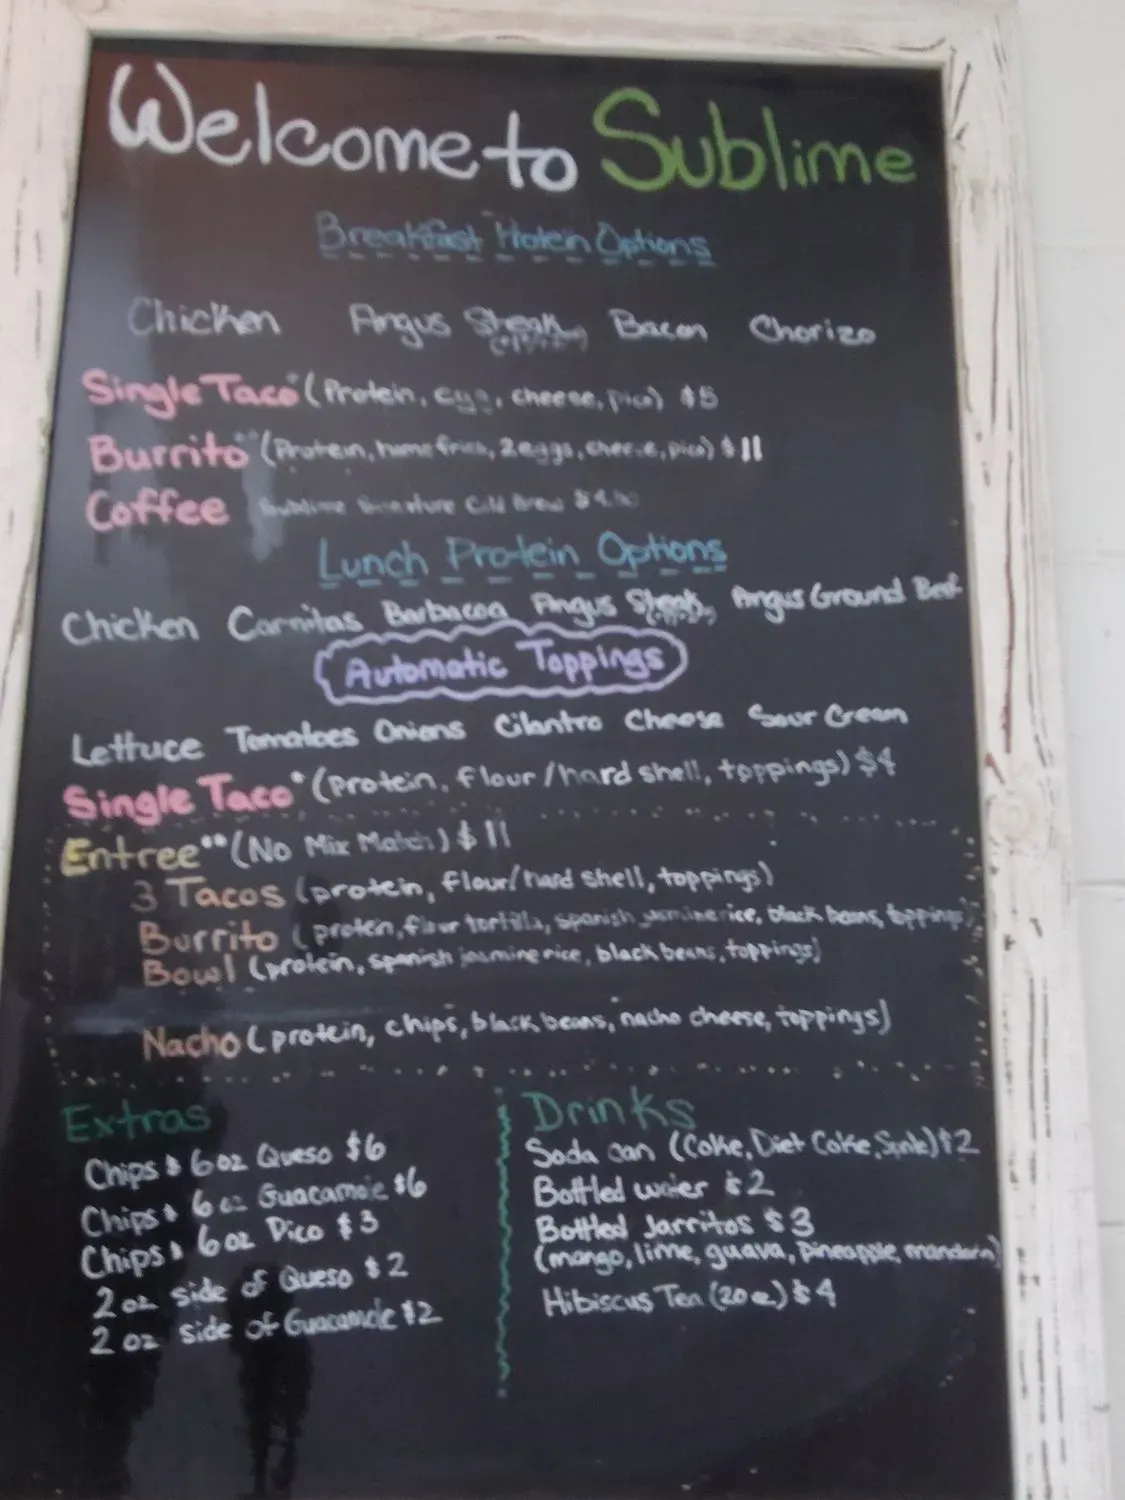 Welcome to Sublime
Breakfast Protein Options
Chicken Angus Steak Bacon Chorizo
Single Taco* (Protein, egg, cheese, pico) $5
Burrito** (Protein, home fries, 2 eggs, cheese, pico) $11
Coffee Sublime Signature Cold Brew
Lunch Protein Options
Chicken Carnitas Barbacoa Angus Steak Angus Ground Beef
Automatic Toppings
Lettuce Tomatoes Onions Cilantro Cheese Sour Cream
Single Taco* (protein, flour/hard shell, toppings) $4
Entree** (No Mix Match) $11
3 Tacos (protein, flour/hard shell, toppings)
Burrito (protein, flour tortilla, spanish jasmine rice, black beans, toppings)
Bowl (protein, spanish jasmine rice, black beans, toppings)
Nacho (protein, chips, black beans, nacho cheese, toppings)
Extras
Chips & 6oz Queso $6
Chips & 6oz Guacamole $6
Chips & 6oz Pico $3
2 oz side of Queso $2
2 oz side of Guacamole $2
Drinks
Soda can (Coke, Diet Coke, Sprite) $2
Bottled water $2
Bottled Jarritos $3
(mango, lime, guava, pineapple, mandarin)
Hibiscus Tea (20 oz) $4